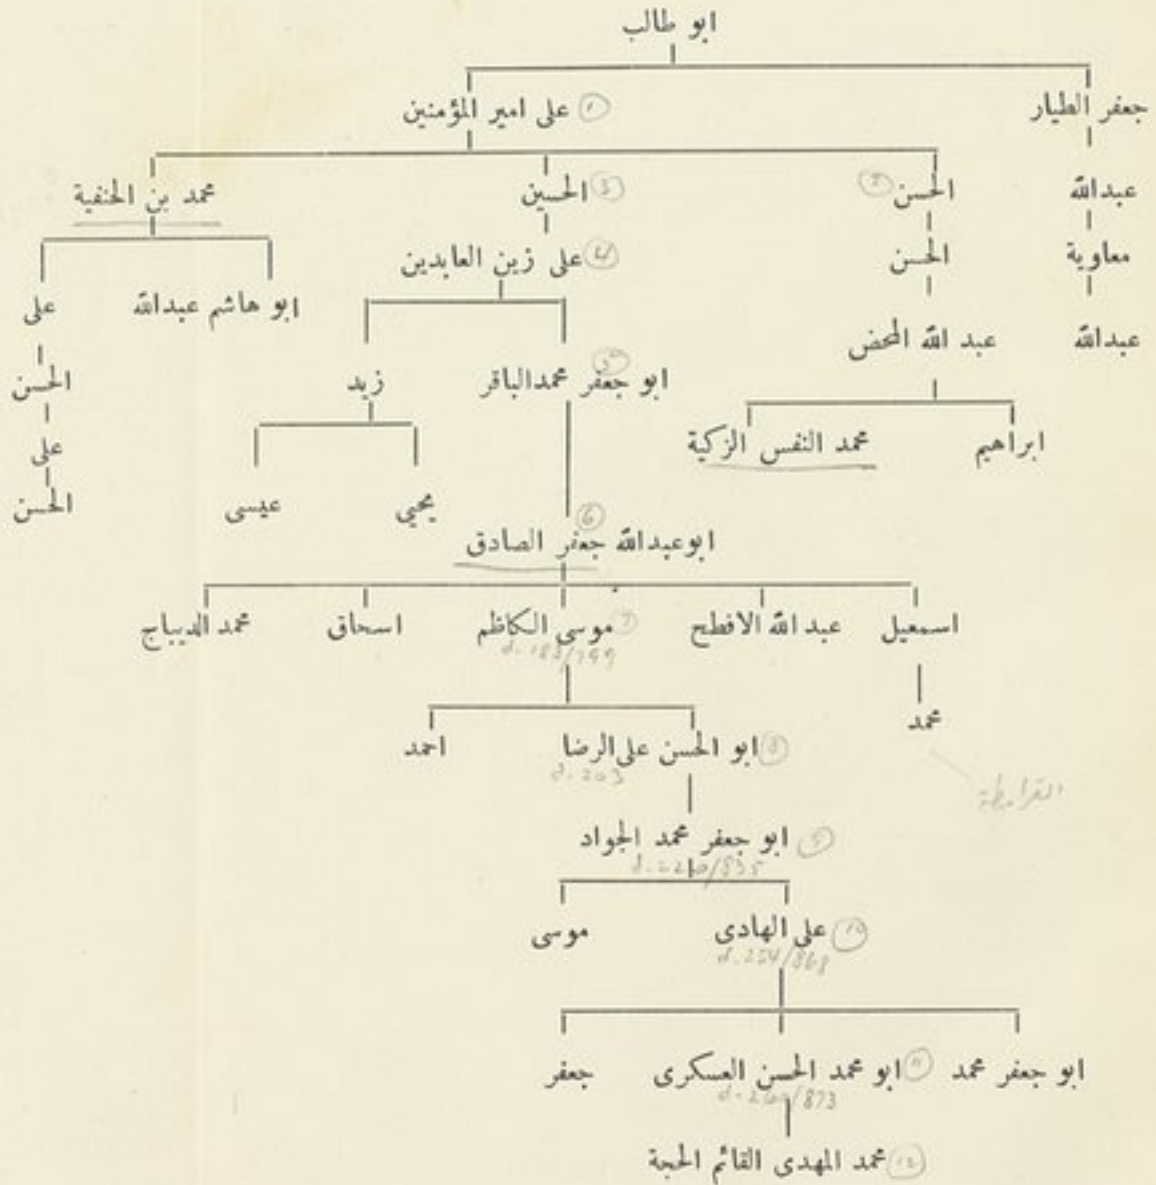 ابو طالب
جعفر الطيار
① على امير المؤمنين
عبدالله
الحسن ②
③ الحسين
محمد بن الحنفية
معاوية
الحسن
④ على زين العابدين
ابو هاشم عبدالله
على
عبدالله
عبد الله المحض
ابو جعفر محمدالباقر ⑤
زيد
الحسن
ابراهيم
محمد النفس الزكية
على
يحيى
عيسى
الحسن
⑥
ابوعبدالله جعفر الصادق
اسمعيل
عبدالله الافطح
⑦ موسى الكاظم
اسحاق
محمد الديباج
d. 183/799
محمد
⑧ ابو الحسن على الرضا
احمد
d. 203
القرامطة
⑨ ابو جعفر محمد الجواد
d. 220/835
⑩ على الهادى
موسى
d. 254/868
ابو جعفر محمد
⑪ ابو محمد الحسن العسكرى
جعفر
d. 260/873
⑫ محمد المهدى القائم الحجة